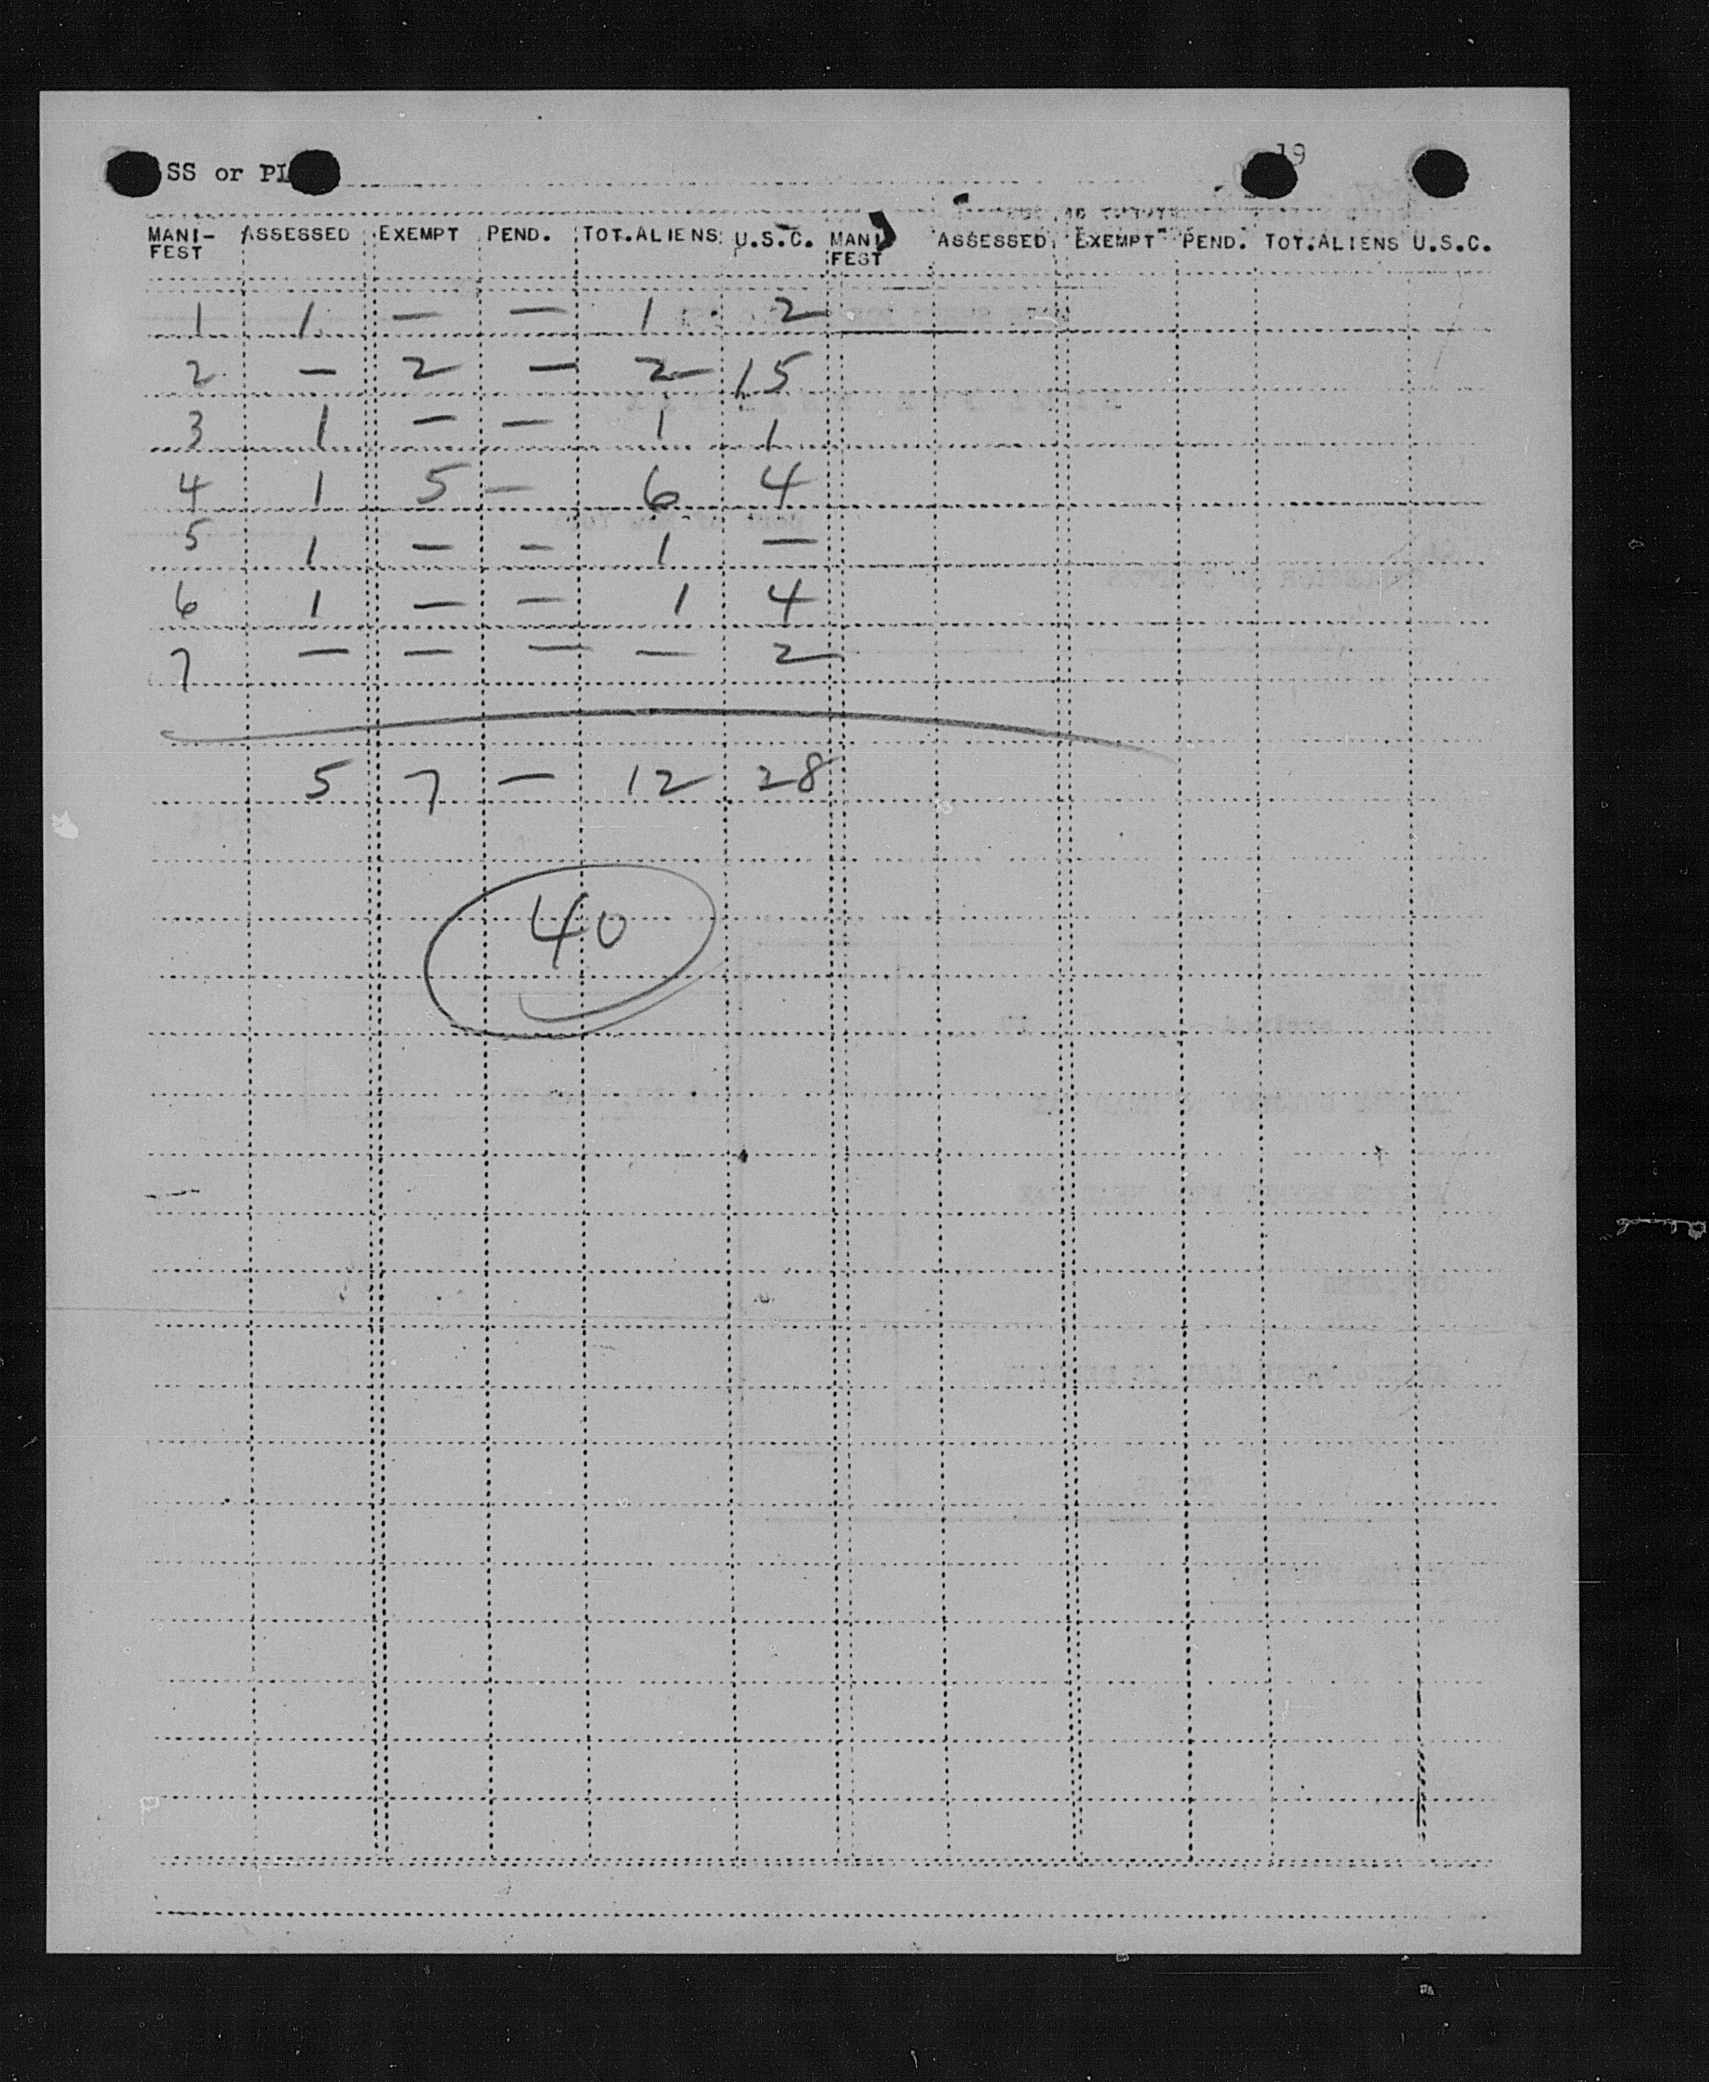 SS or PL 19
MANI- ASSESSED EXEMPT PEND. TOT.ALIENS U.S.C. MANI ASSESSED EXEMPT PEND. TOT.ALIENS U.S.C.
FEST FEST
1 1 — — 1 2
2 — 2 — 2 15
3 1 — — 1 1
4 1 5 — 6 4
5 1 — — 1 —
6 1 — — 1 4
7 — — — — 2
5 7 — 12 28
40